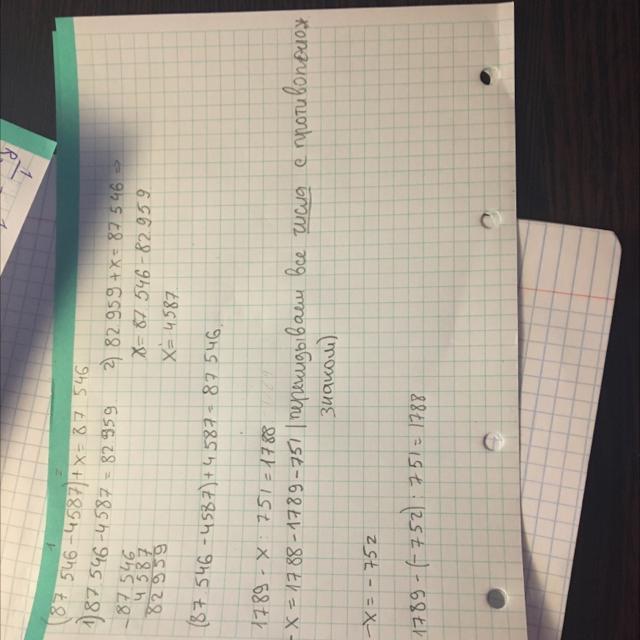 (87 546 - 4587) + x = 87 546
1) 87 546 - 4587 = 82 959
- 87 546
4 587
82 959
2) 82 959 + x = 87 546 ⇒
x = 87 546 - 82 959
x = 4587
(87 546 - 4587) + 4587 = 87 546.
1789 - x : 751 = 1788
- x = 1788 - 1789 - 751 | перекидываем все числа с противополож
знаком)
-x = -752
1789 - (-752) : 751 = 1788